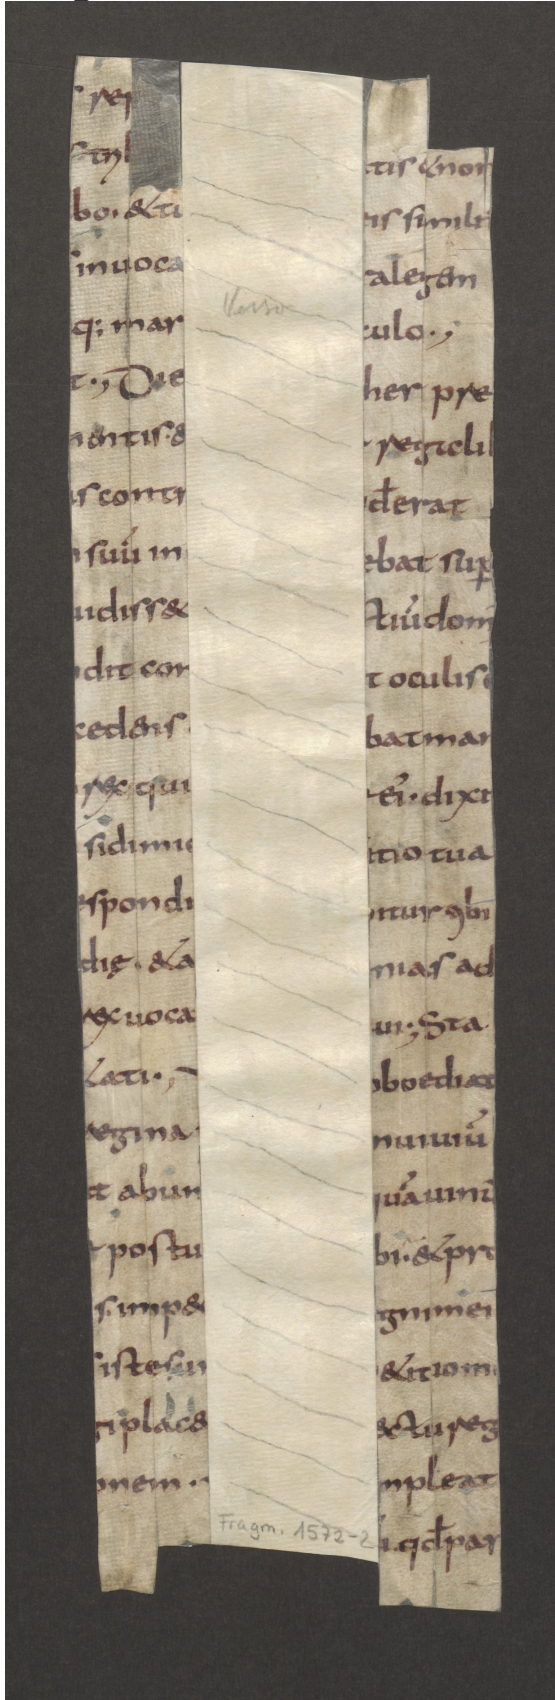 rei
s trib
bo. & tu
inuoca
q; mar
t.; Die
mentis &
s contr
suū in
udiss&
dit con
cedens
rex qui
si dimi
espondi
die. & a
ex uoca
lati.;
regina
t abun
postu
s. imp&
iste sin
gi plac&
onem.
Verso
Fragm. 1572-2
tis & nor
eis simili
alegem
culo.;
her pre
regi
derat
ebat sup
ctiū dom
t oculis
bat man
eī. dixi
tio tua
ntur
mias ad
ui; Sta
oboediat
nuiuiū
quā uini
bi. & pr
gni mei
&itiom
ctu reg
mpleat
i. qđ par